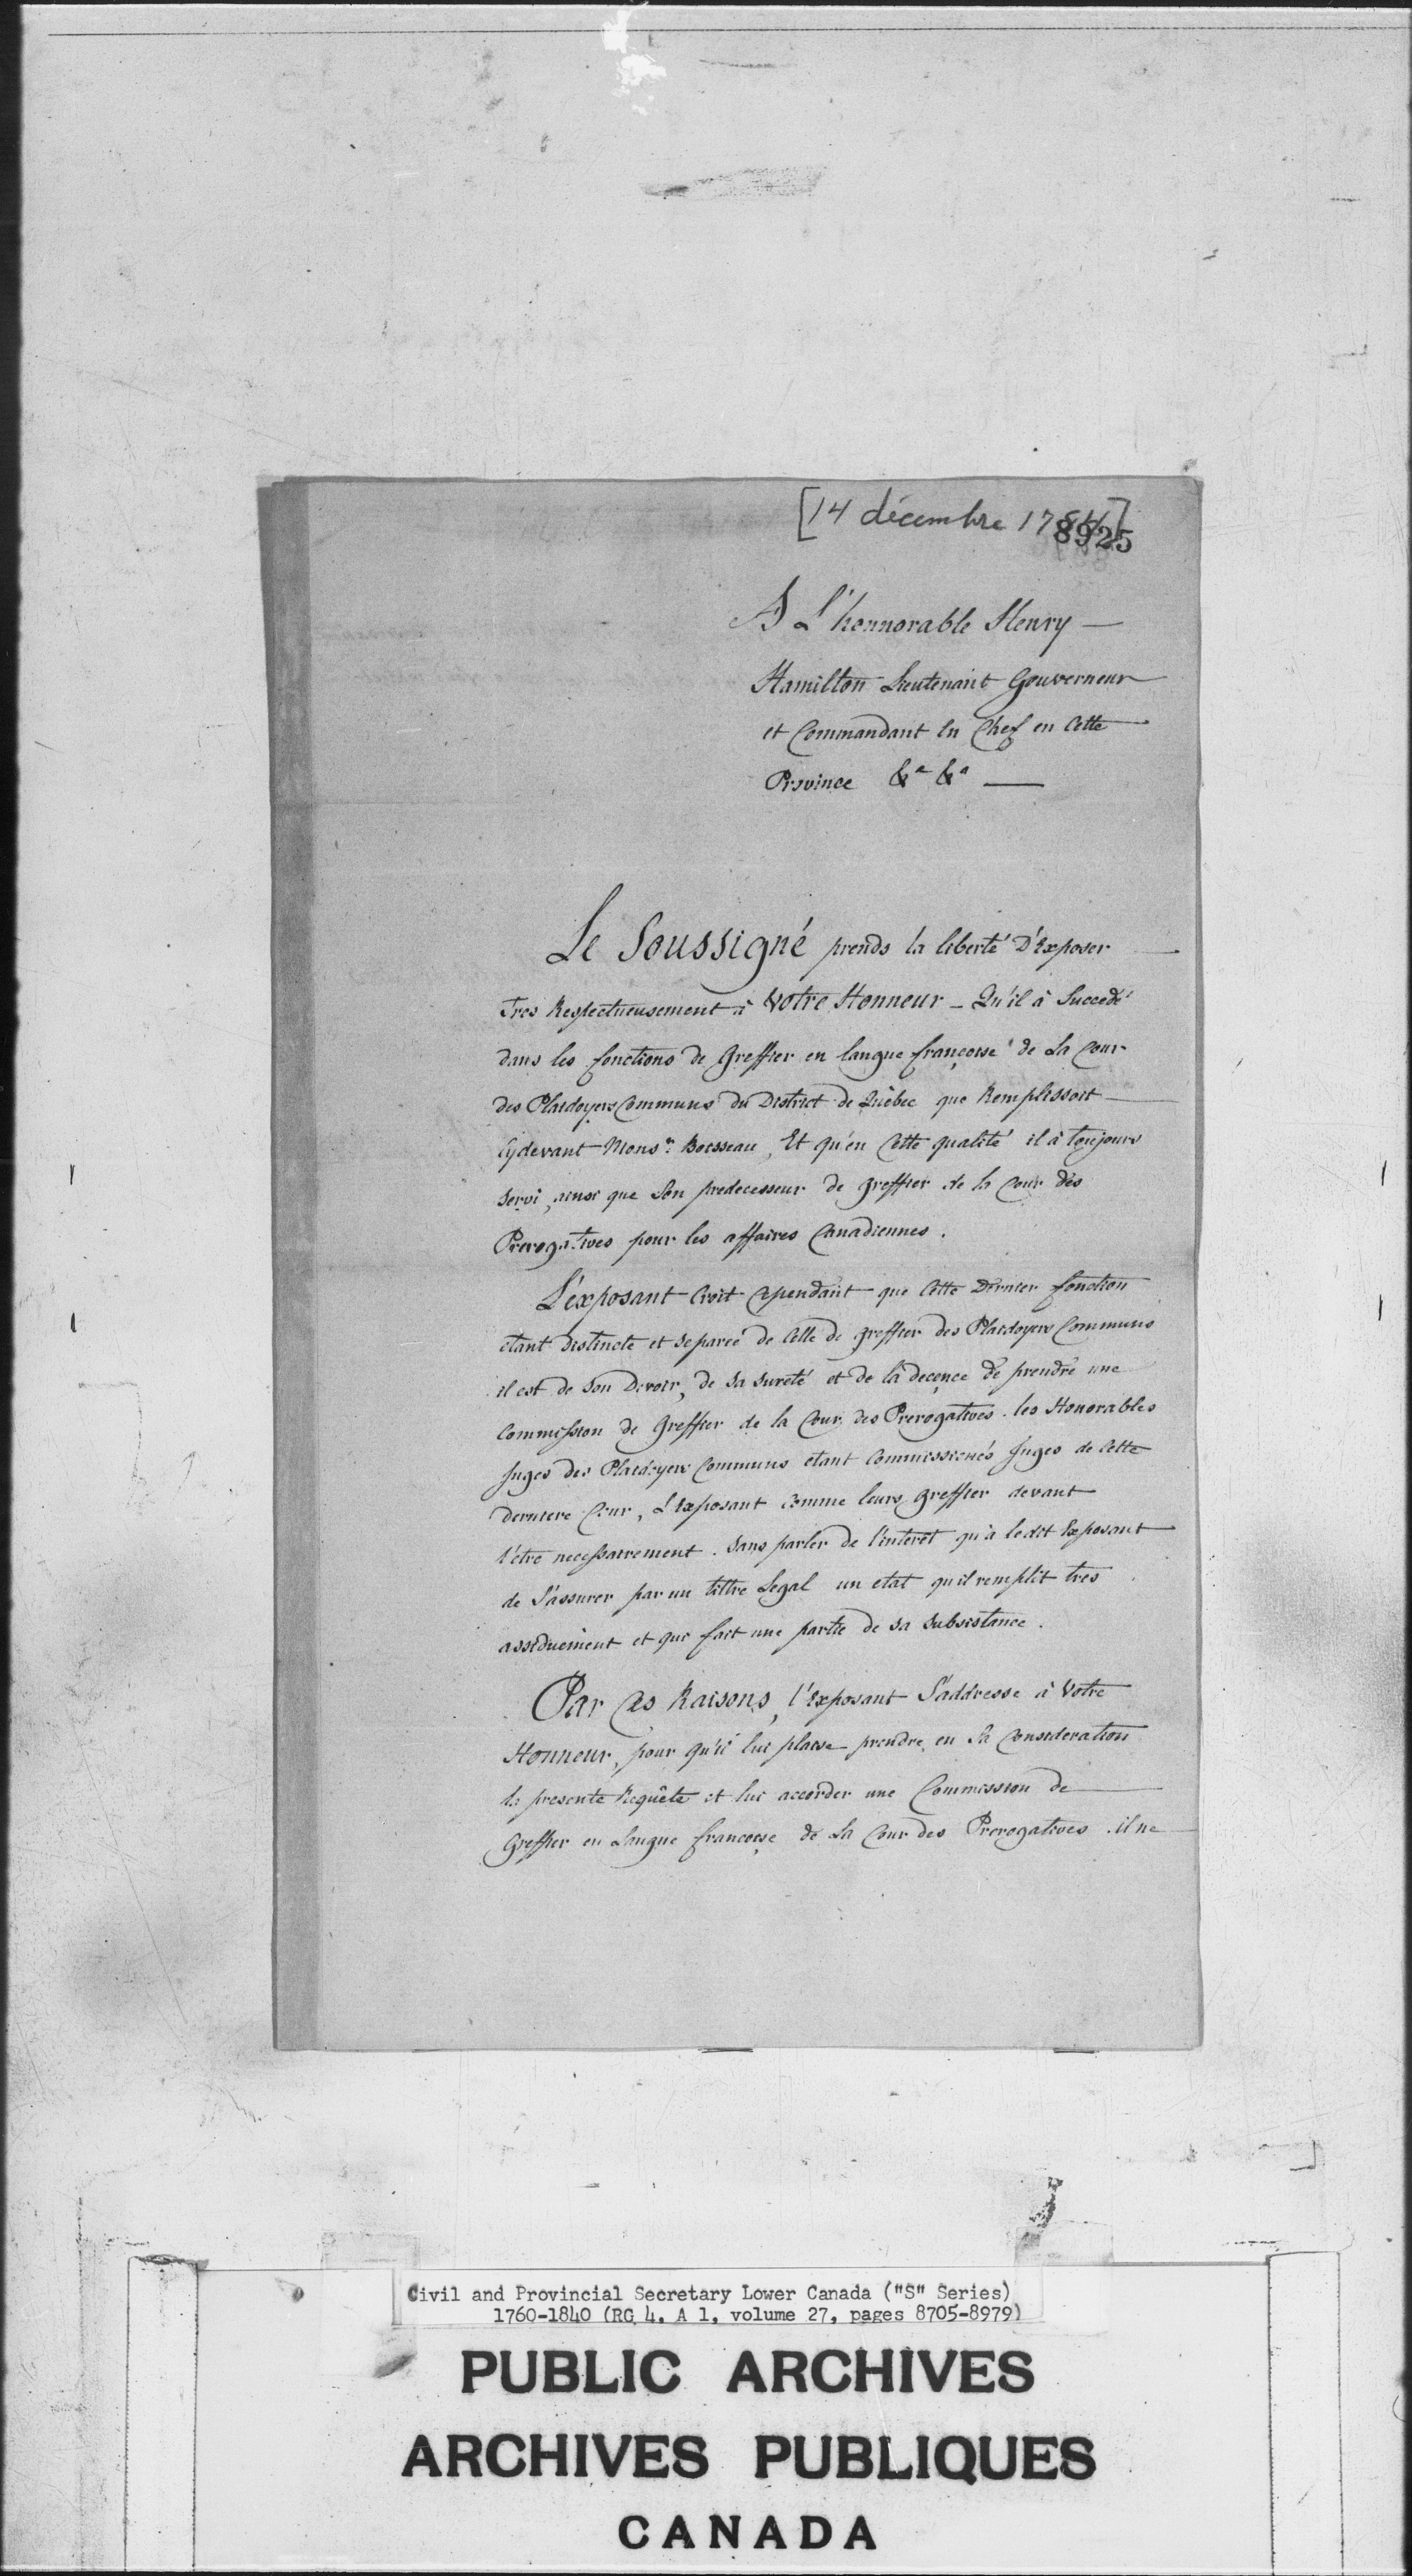 [14 décembre 1784]
8925
A L'honnorable Henry —
Hamilton Lieutenant Gouverneur
et Commandant en Chef en Cette
Province &a &a —
Le Soussigné prends la liberté D'Exposer
Tres Respectueusement à Votre Honneur – Qu'il à Succedé
dans les fonctions de Greffier en langue françoise de La Cour
des Plaidoyers Communs du District de Québec que Remplissoit
Cydevant Monsr. Boisseau, Et qu'en Cette qualité il à toujours
servi, ainsi que Son predecesseur de greffier de la Cour des
Prerogatives pour les affaires Canadiennes.
L'éxposant Croit Cependant que Cette Dernier fonction
etant distincte et separée de Celle de greffier des Plaidoyers Communs
il est de son Devoir, de sa sureté et de la decence de prendre une
Commission de Greffier de la Cour des Prerogatives. les Honorables
Juges des Plaidoyers Communs etant Commissionés Juges de Cette
derniere Cour, L'Exposant comme leurs Greffier devant
l'être necessairement. Sans parler de l'interet qu'à ledit Exposant
de S'assurer par un tittre Legal un etat qu'il remplit tres
assiduement et qui fait une partie de sa Subsistance.
Par Ces Raisons, l'Exposant S'addresse à Votre
Honneur, pour qu'il lui plaise prendre en Sa Consideration
la presente Requête et lui accorder une Commission de
Greffier en Langue françoise de La Cour des Prerogatives. il ne
Civil and Provincial Secretary Lower Canada ("S" Series)
1760-1840 (RG 4, A 1, volume 27, pages 8705-8979)
PUBLIC ARCHIVES
ARCHIVES PUBLIQUES
CANADA